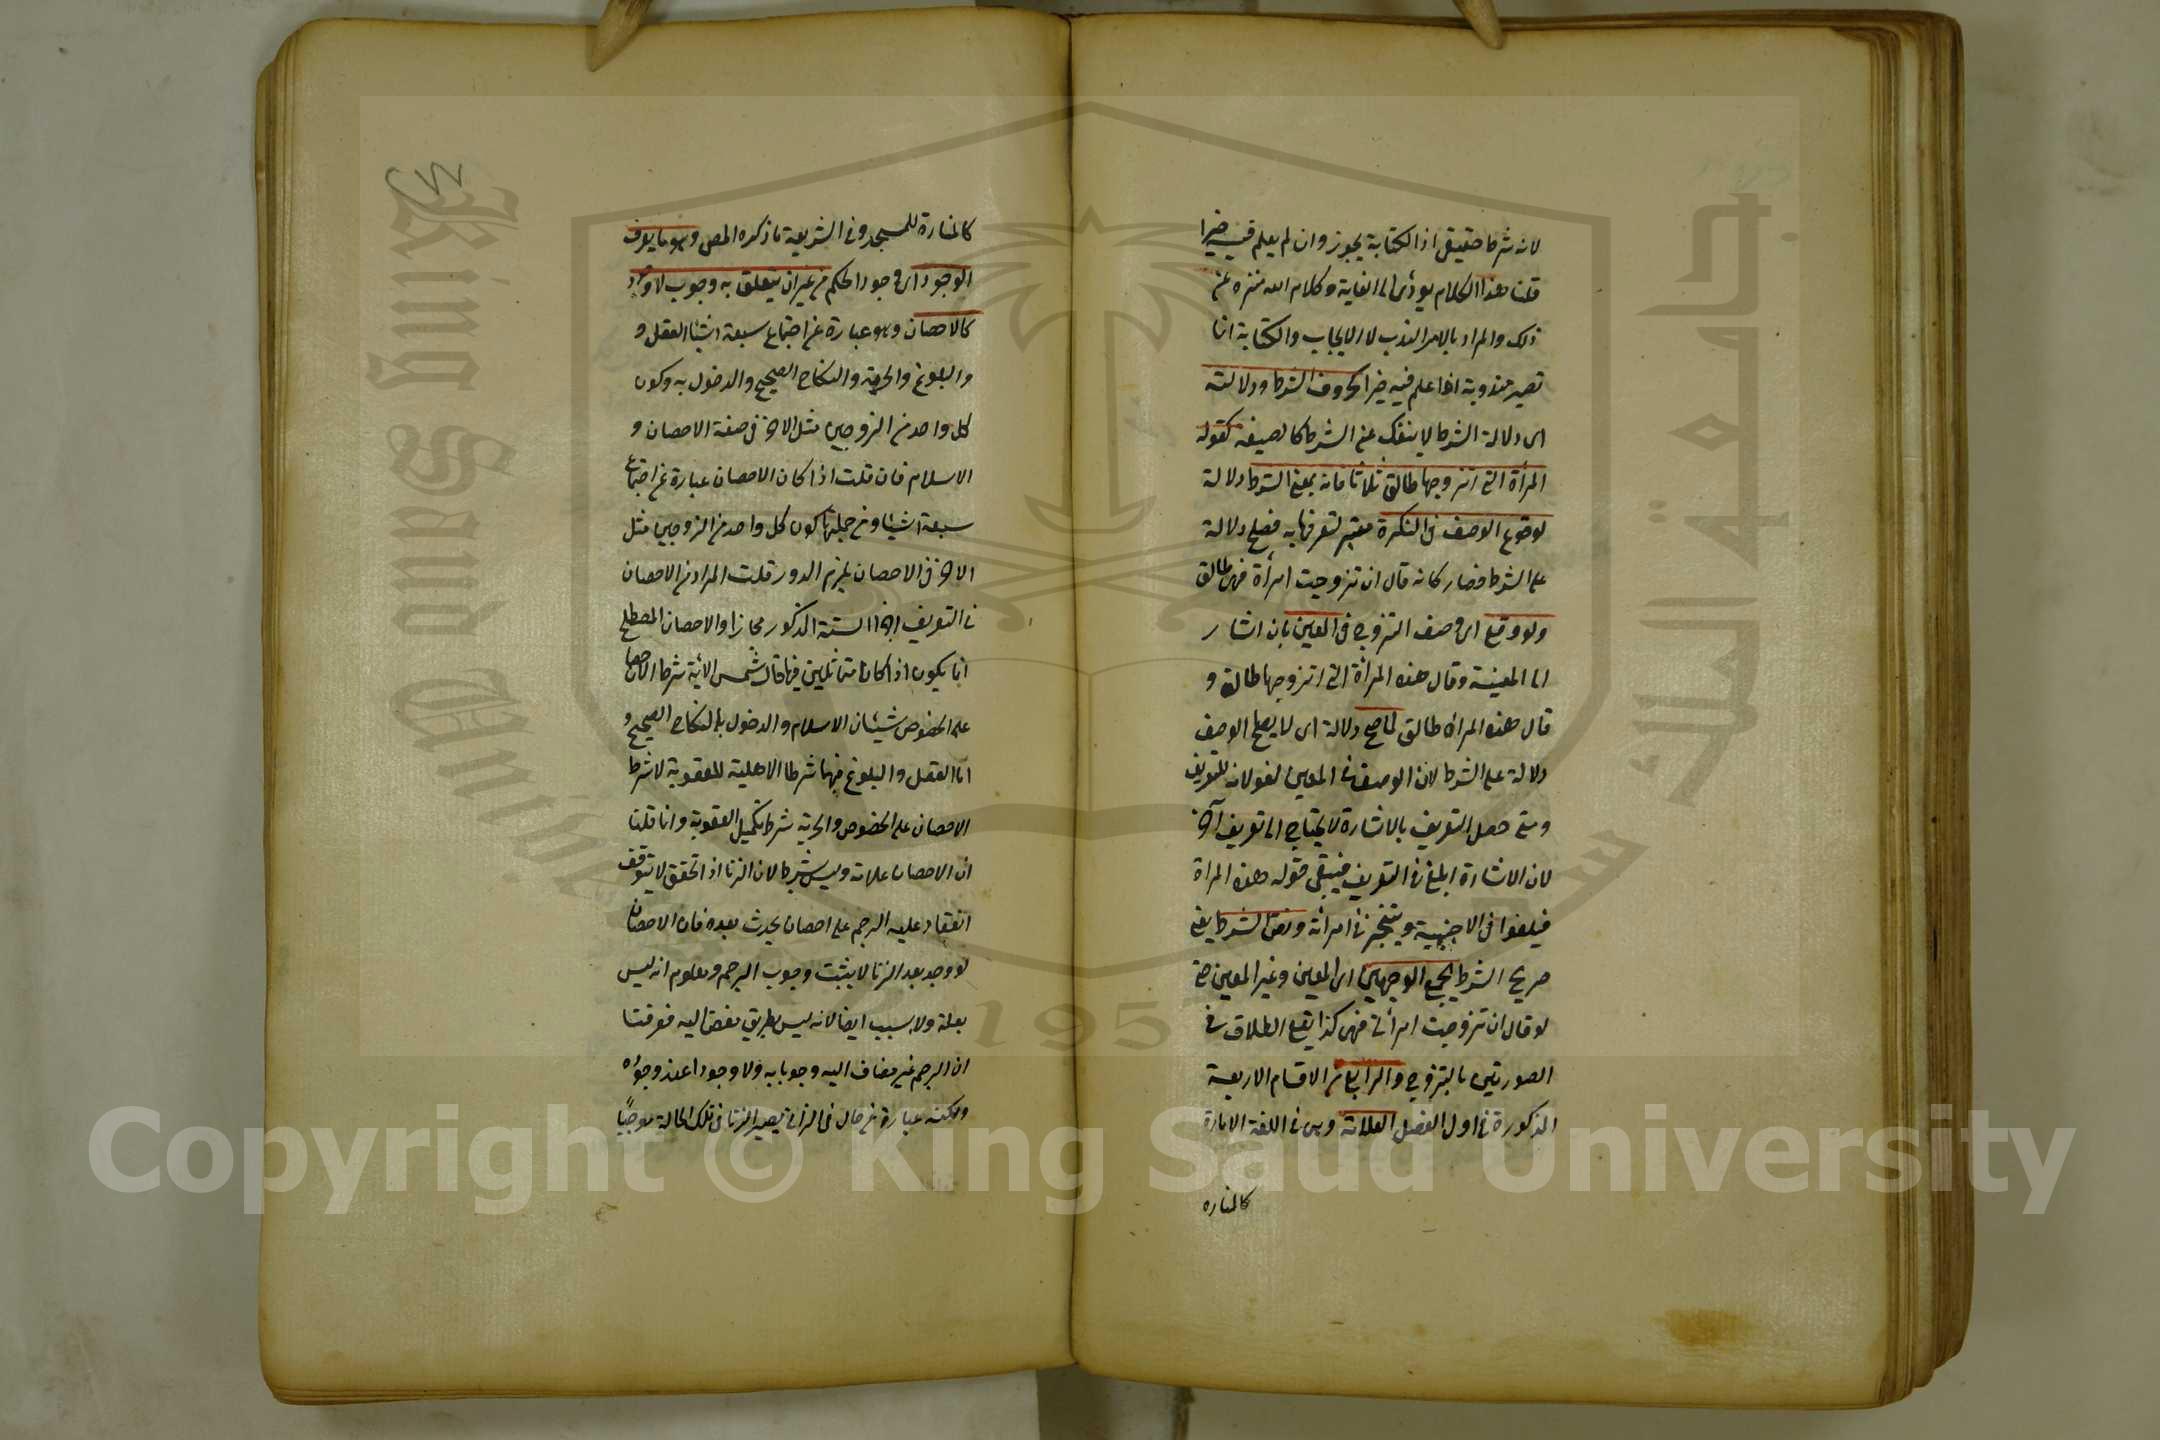 لانه شرط حقيقى اذ الكتابة يجوز وان لم يعلم فيه خيرا
قلنا هذا الكلام يؤدى الى الغاية وكلام الله منزه عن
ذلك والمراد بالامر الندب لا الايجاب والكتابة انما
تصير مندوبة اذا علم فيه خيرا كحروف الشرط ودلالته
اى دلالة الشرط لا ينفك عن الشرط كالصيغه كقوله
المرأة التى اتزوجها طالق ثلاثا فانه بمعنى الشرط دلالة
لوقوع الوصف فى النكرة معتبر لتعرفها به فصلح دلالة
على الشرط فصار كانه قال ان تزوجت امرأة فهى طالق
ولو وقع اى وصف التزوج فى المعين بان اشار
الى المعينة وقال هذه المرأة التى اتزوجها طالق و
قال هذه المرأة طالق لما صح دلالة اى لا يصلح الوصف
دلالة على الشرط لان الوصف فى المعين لغو لانه للتعريف
ومتى حصل التعريف بالاشارة لا يحتاج الى تعريف آخر
لان الاشارة ابلغ فى التعريف فيبقى قوله هذه المرأة
فيلغوا فى الاجنبية ويتنجز فى امرأته ونص الشرط يعنى
صريح الشرط يجمع الوجهين اى المعين وغير المعين حتى
لو قال ان تزوجت امرأتى فهى كذا يقع الطلاق فى
الصورتين بالتزوج والرابع من الاقسام الاربعة
المذكورة فى اول الفصل العلامة وهى فى اللغة الامارة
كالمناره
كالمنارة للمسجد وفى الشريعة ما ذكره المص وهو ما يعرف
الوجود اى وجود الحكم من غير ان يتعلق به وجوب لا وجود
كالاحصان وهو عبارة عن اجتماع سبعة اشياء العقل و
والبلوغ والحرية والنكاح الصحيح والدخول به وكون
كل واحد من الزوجين مثل الاخر فى صفة الاحصان و
الاسلام فان قلت اذا كان الاحصان عبارة عن اجتماع
سبعة اشياء ومن جملتها كون كل واحد من الزوجين مثل
الاخر فى الاحصان يلزم الدور قلت المراد من الاحصان
فى التعريف اجزا الستة المذكور مجازا والاحصان المصطلح
انما يكون اذا كانا متماثلين فيها قال شمس الائمة شرط الاحصان
على الخصوص شيئان الاسلام والدخول بالنكاح الصحيح و
اما العقل والبلوغ فهما شرطا الاهلية للعقوبة لا شرط
الاحصان على الخصوص والحرية شرط تكميل العقوبة وانما قلنا
ان الاحصان علامة وليس بشرط لان الزنا اذا تحقق لا يتوقف
انعقاد عليه الرجم على احصان يحدث بعده فان الاحصان
لو وجد بعد الزنا لا يثبت وجوب الرجم ومعلوم انه ليس
بعلة ولا سبب ايضا لانه ليس بطريق مفض اليه فعرفنا
ان الرجم غير مضاف اليه وجوبا به ولا وجودا عند وجوده
ولكنه عبارة عن حال فى الزانى يصير الزنا فى تلك الحالة موجبا
King Saud Unive
جامعة الملك سعو
195
Copyright © King Saud University